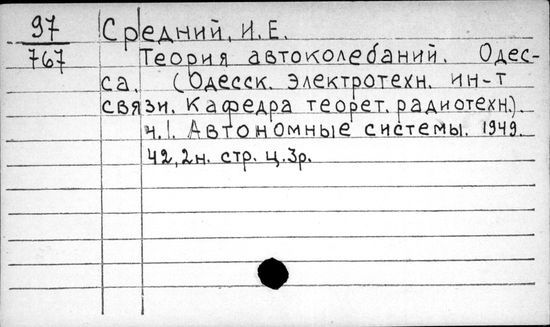 97 Средний, И. Е.
767 Теория автоколебаний. Одес-
са. (Одесск. электротехн. ин-т
связи. Кафедра теорет. радиотехн.).
ч. I. Автономные системы. 1949.
42, 2н. стр. ц. 3р.